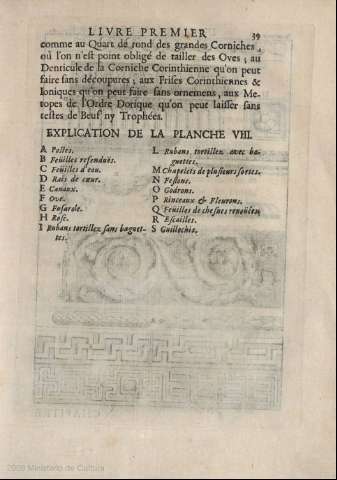 LIVRE PREMIER 39
comme au Quart de rond des grandes Corniches,
où l'on n'est point obligé de tailler des Oves; au
Denticule de la Corniche Corinthienne qu'on peut
faire sans découpures; aux Frises Corinthiennes &
Ioniques qu'on peut faire sans ornemens, aux Me-
topes de l'Ordre Dorique qu'on peut laisser sans
testes de Beuf ny Trophées.
EXPLICATION DE LA PLANCHE VIII.
A Postes.
B Feüilles refendues.
C Feüilles d'eau.
D Rais de cœur.
E Canaux.
F Ove.
G Fusarole.
H Rose.
I Rubans tortillez sans baguet-
tes.
L Rubans tortillez avec ba-
guettes.
M Chapelets de plusieurs sortes.
N Festons.
O Godrons.
P Rinceaux & Fleurons.
Q Feüilles de chesnes renoüées,
R Escailles.
S Guillochis.
CHAPITRE
2009 Ministerio de Cultura